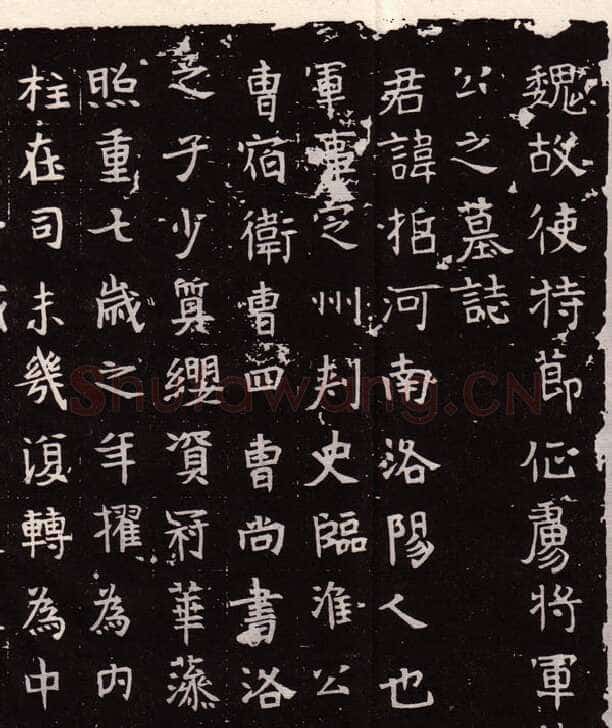 魏故使持節征虜將軍
公之墓誌
君諱河南洛陽人也
軍事定州刾史臨淮公
曹宿衛曹四曹尚書洛
之子少纓資冠華藻
照重七歲之年擢為內
柱在司未幾復轉為中
Shufawang.CN